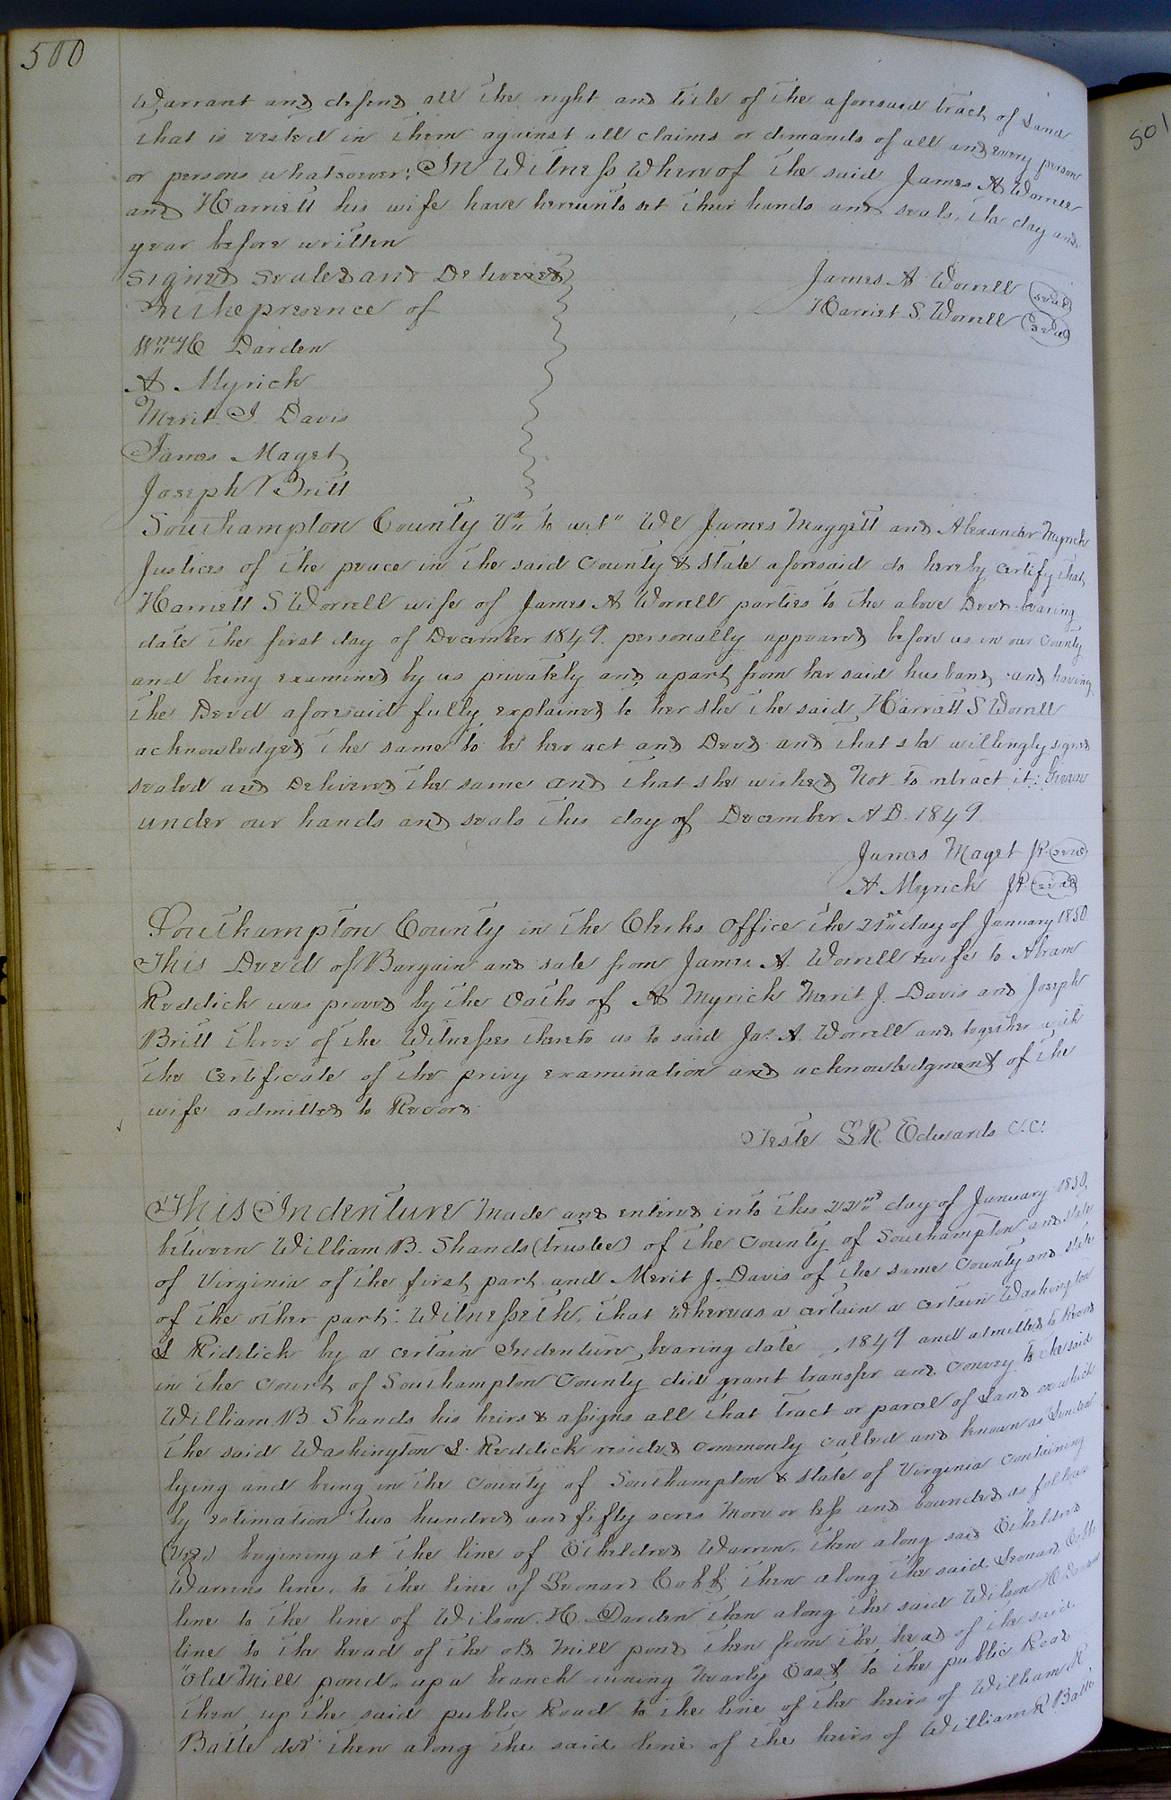 500
501
Warrant and defend all the right and title of the aforesaid tract of Land
that is vested in them against all claims or demands of all and every person
or persons whatsoever: In Witness Whereof the said James A Worrell
and Harriett his wife have hereunto set their hands and seals, the day and
year before written
Signed Sealed and Delivered
In the presence of
Wm H Darden
A Myrick
Merit J. Davis
James Maget
Joseph Britt
James A Worrell (seal)
Harriet S. Worrell (seal)
Southampton County Va to wit" We James Maggett and Alexander Myrick
Justices of the peace in the said County & State aforesaid do hereby certify that
Harriett S Worrell wife of James A Worrell parties to the above Deed bearing
date the first day of December 1849. personally appeared before us in our County
and being examined by us privately and apart from her said husband and having
the Deed aforesaid fully explained to her she the said Harriett S Worrell
acknowledged the same to be her act and Deed and that she willingly signed
sealed and Delivered the same and that she wished Not to retract it: Given
under our hands and seals this day of December A D. 1849
James Maget JP. (seal)
A Myrick JP (seal)
Southampton County in the Clerks Office the 21st day of January 1850
This Deed of Bargain and sale from James A. Worrell & wife to Abram
Reddick was proved by the Oaths of A Myrick Merit J. Davis and Joseph
Britt three of the Witnesses thereto as to said Jas. A. Worrell and together with
the Certificate of the privy examination and acknowledgment of the
wife admitted to Record
Teste L R. Edwards C.C.
This Indenture Made and entered into this 22nd day of January 1850,
between William B. Shands (trustee) of the County of Southampton and state
of Virginia of the first part and Merit J. Davis of the same County and state
of the other part: Witnesseth, that Whereas a certain a certain Washington
L Riddick by a certain Indenture, bearing date , 1849 and admitted to Record
in the Court of Southampton County did grant transfer and convey to the said
William B Shands his heirs & assigns all that tract or parcel of Land on which
the said Washington L. Reddick resided commonly called and known as
lying and being in the County of Southampton & state of Virginia containing
by estimation Two hundred and fifty acres More or less and bounded as follows
(viz) begining at the line of Etheldred Warren, then along said Etheldred
Warrens line, to the line of Leonard Cobb then along the said Leonard Cobb
line to the line of Wilson H. Darden then along the said Wilson H. Darden
line to the head of the old Mill pond then from the head of the said
Old Mill pond, up a branch runing Nearly East to the public Road
then up the said public Road to the line of the heirs of William R
Batte decd then along the said line of the heirs of William R Batte